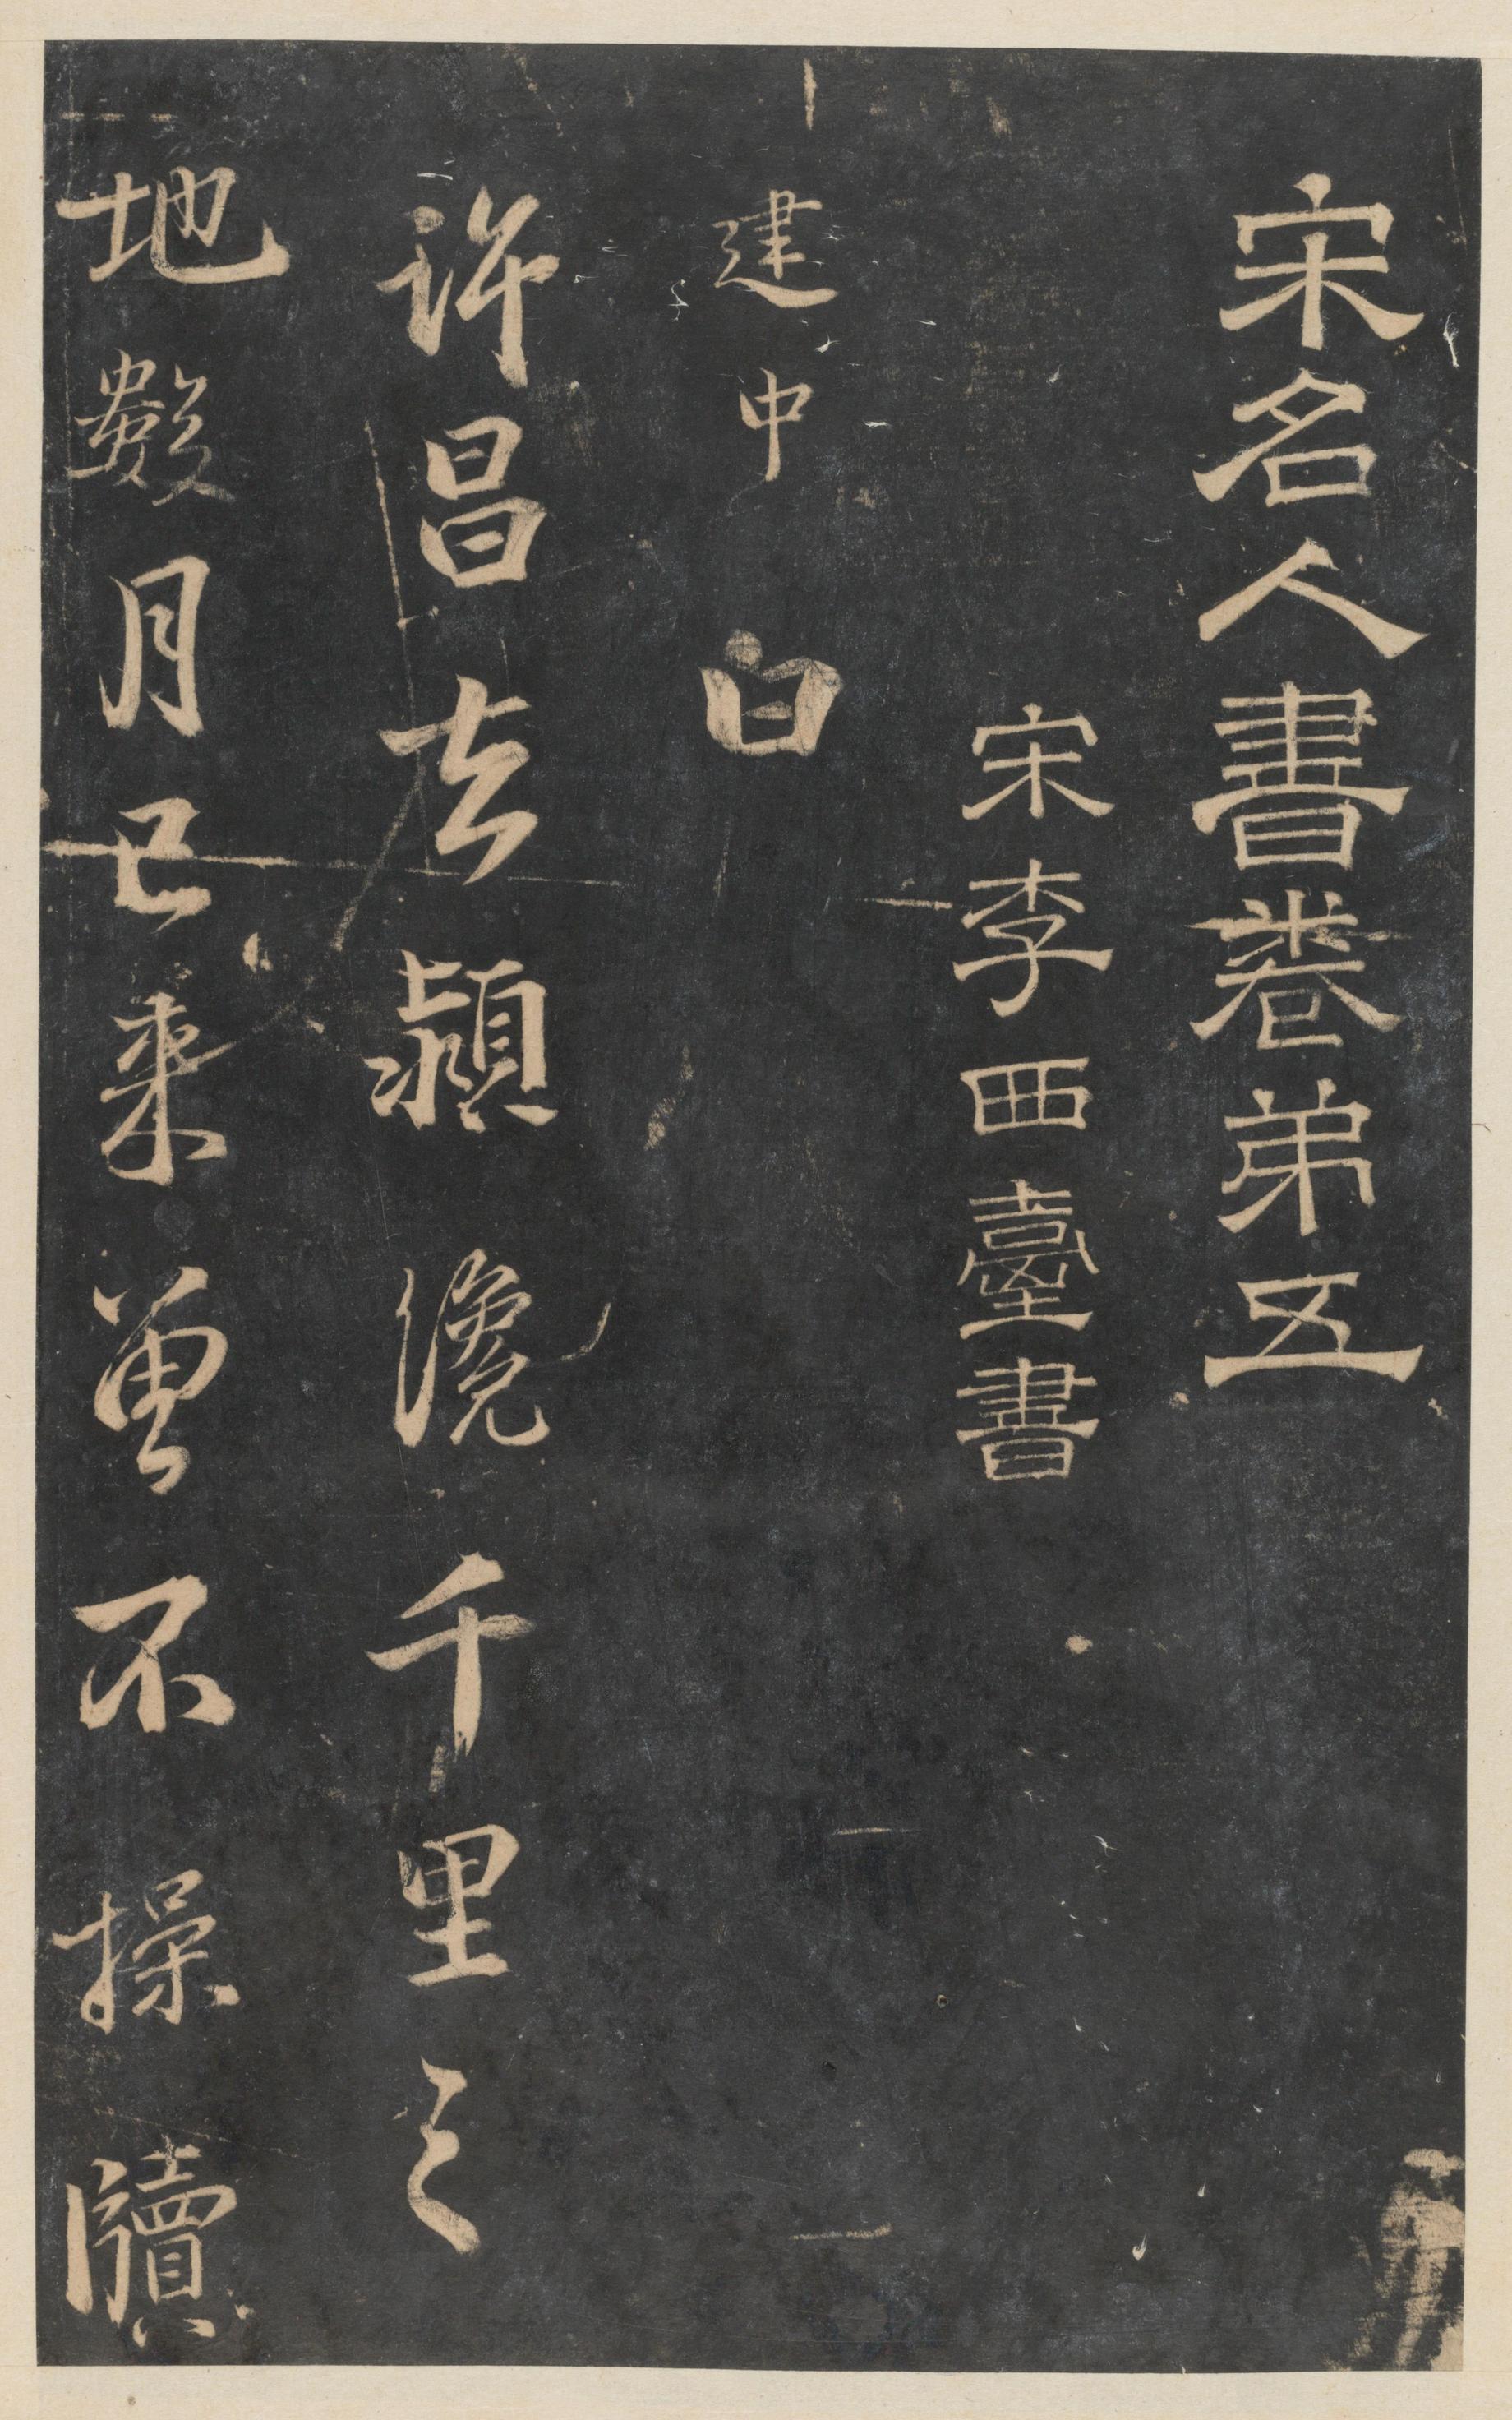 宋名人書卷弟五
宋李西臺書
建中白
許昌去潁纔千里之
地數月已來曾不操牘